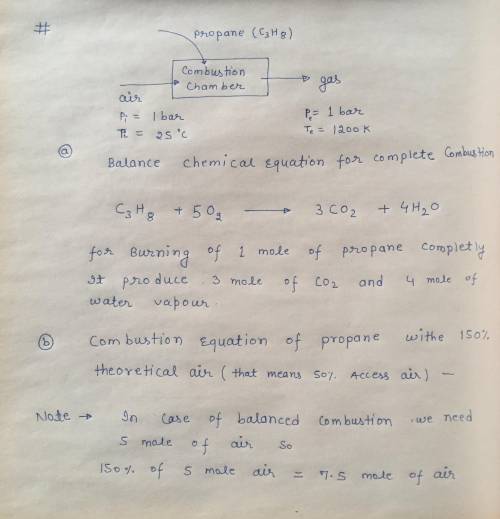 #
propane (C3H8)
Combustion
Chamber
gas
air
Pi = 1 bar
Ti = 25°C
Pe = 1 bar
Te = 1200 K
(a) Balance chemical Equation for complete Combustion
C3H8 + 5O2 → 3CO2 + 4H2O
for Burning of 1 mole of propane completly
It produce 3 mole of CO2 and 4 mole of
water vapour.
(b) Combustion Equation of propane withe 150%
theoretical air (that means 50% Access air) —
Note → In case of balanced Combustion we need
5 mole of air so
150% of 5 mole air = 7.5 mole of air